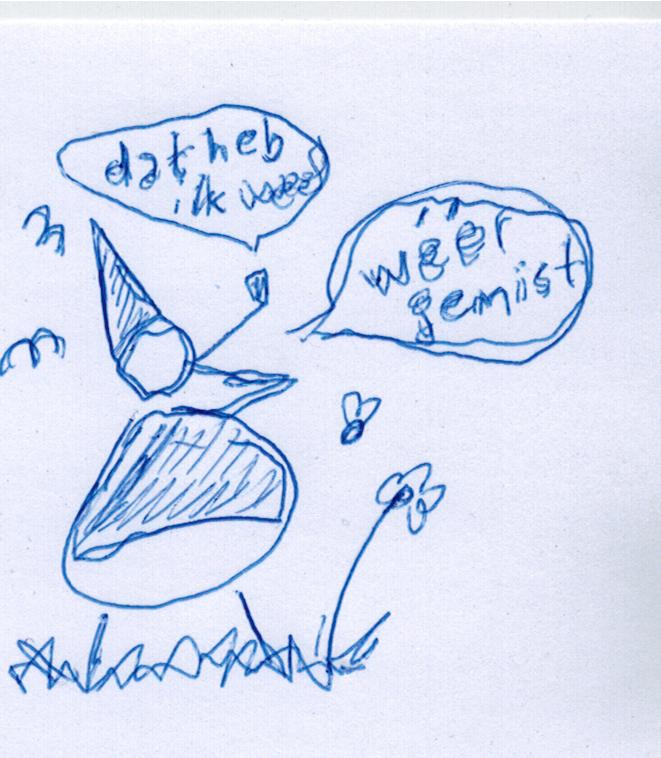 dat heb
ik weer
wëër
gemist